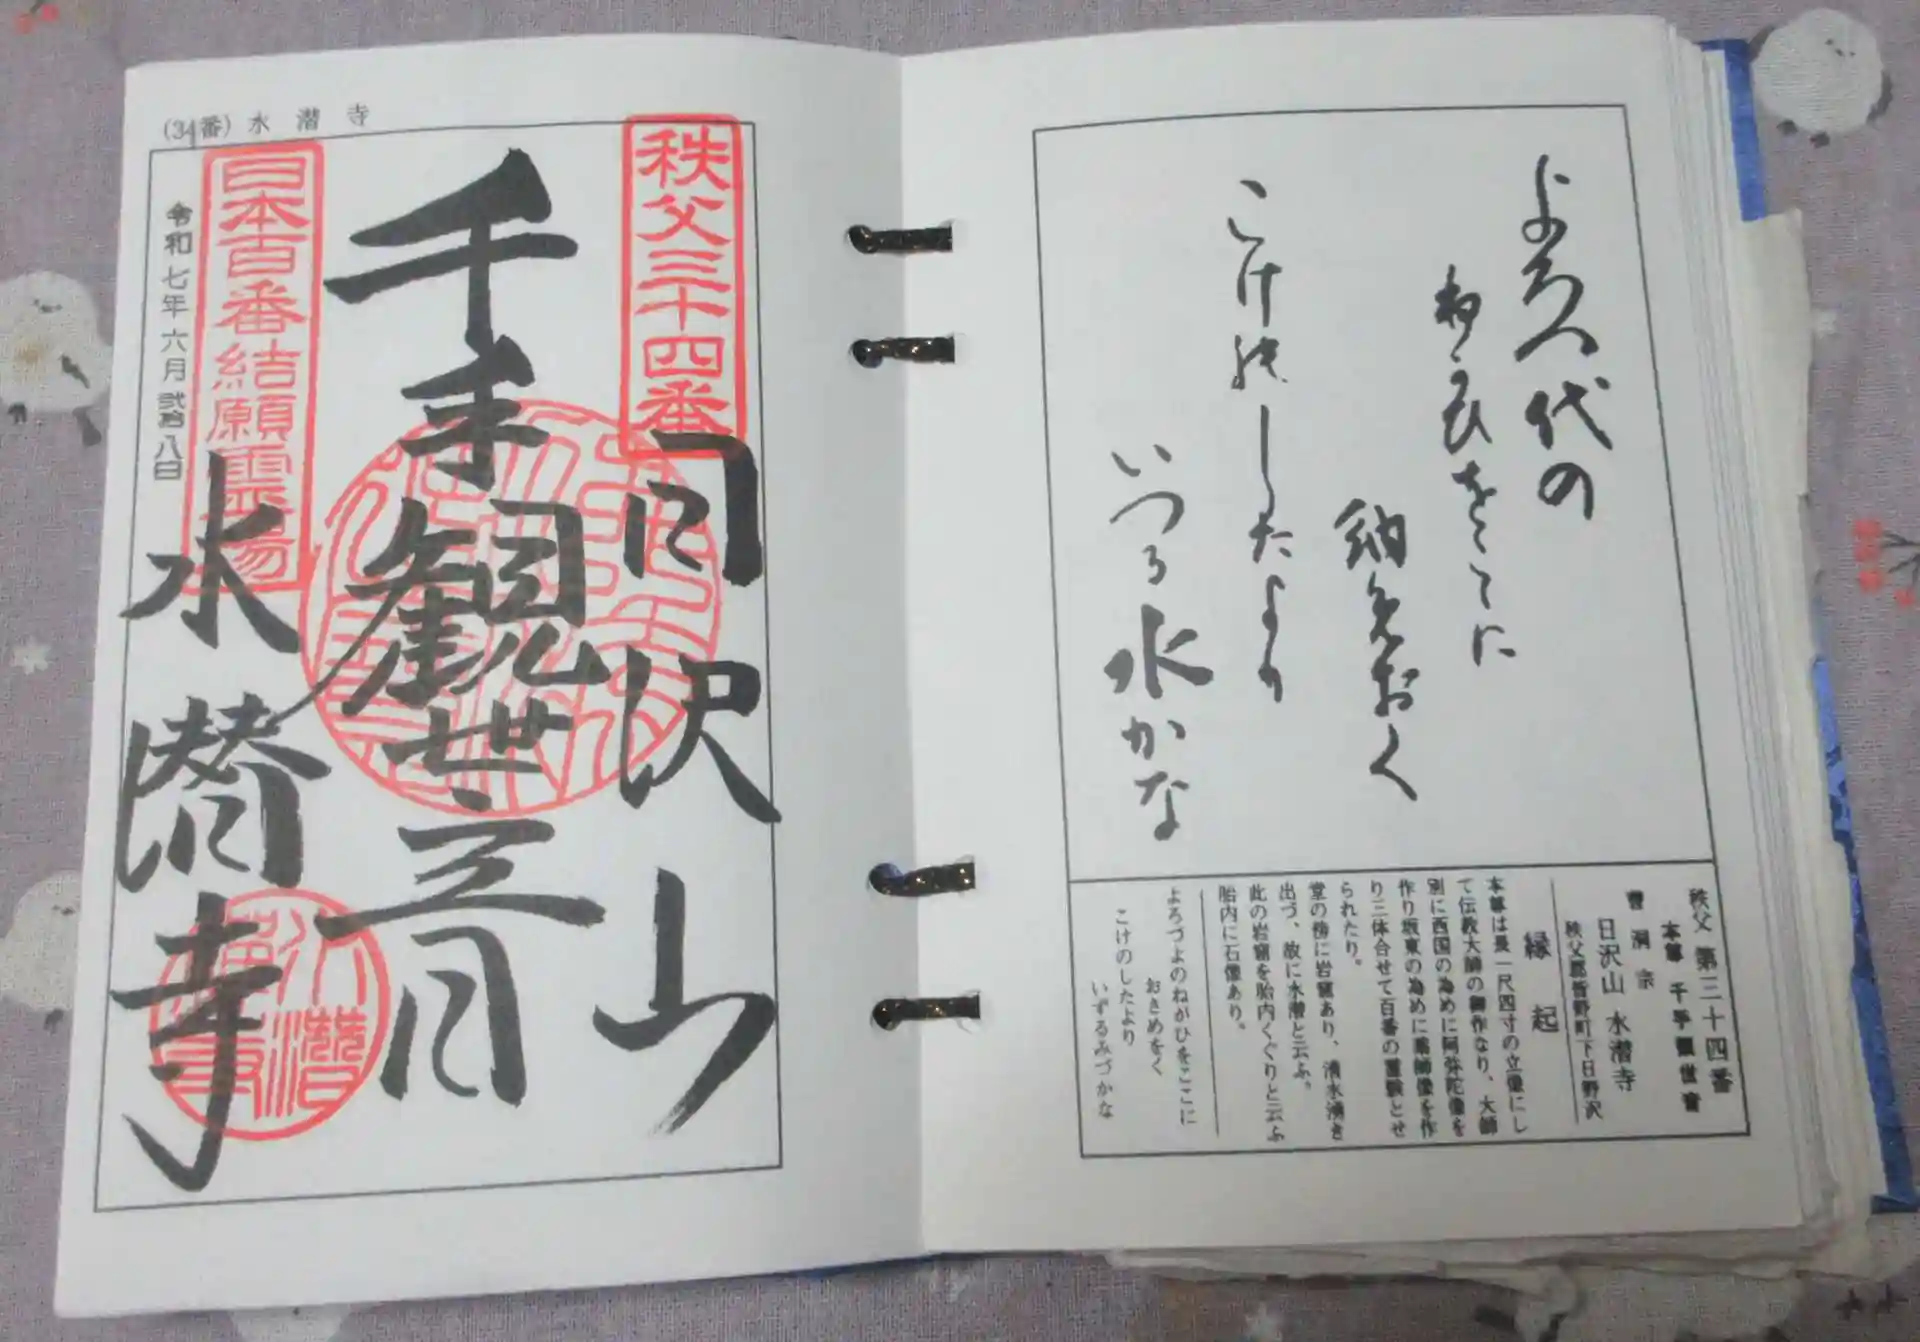 よろつ代の
ねかひをこゝに
納めおく
こけ能したより
いつる水かな
秩父 第三十四番
本尊 千手観世音
曹洞宗
日沢山 水潜寺
秩父郡皆野町下日野沢
縁起
本尊は長一尺四寸の立像にし
て伝教大師の御作なり、大師
別に西国の為めに阿弥陀像を
作り坂東の為めに薬師像を作
り三体合せて百番の霊験とせ
られたり。
堂の傍に岩窟あり、清水湧き
出づ、故に水潜と云ふ。
此の岩窟を胎内くぐりと云ふ
胎内に石像あり。
よろづよのねがひをここに
おさめをく
こけのしたより
いずるみづかな
(34番) 水潜寺
秩父三十四番
日沢山
千手観世音
水潜寺
日本百番結願霊場
令和七年六月弐拾八日